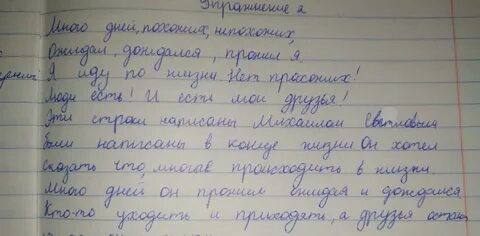 Упражнение 2
Много дней, похожих, непохожих,
Ожидал, дождался, прожил я.
Я иду по жизни. Нет прохожих!
Люди есть! И есть мои друзья!
Эти строки написаны Михаилом Светловым
были написаны в конце жизни Он хотел
сказать что, многое происходить в жизни.
Много дней он прожил ожидая и дождался
Кто-то уходить и приходять, а друзья